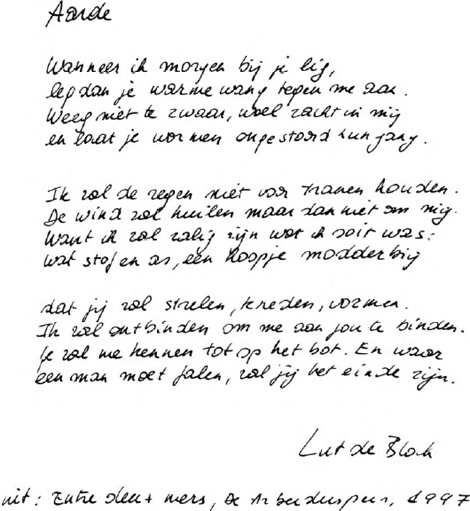 Aarde
Wanneer ik morgen bij je lig,
leg dan je warme wang tegen me aan.
Weeg niet te zwaar, woel zacht in mij
en laat je wormen ongestoord hun gang.
Ik zal de regen niet voor tranen houden.
De wind zal huilen maar dan niet om mij.
Want ik zal zalig zijn wat ik ooit was:
wat stof en as, een hoopje modderbrij
dat jij zal strelen, kneden, vormen.
Ik zal ontbinden om me aan jou te binden.
Je zal me kennen tot op het bot. En waar
een man moet falen, zal jij het einde zijn.
Lut de Block
uit: Entre deux mers, De Arbeiderspers, 1997